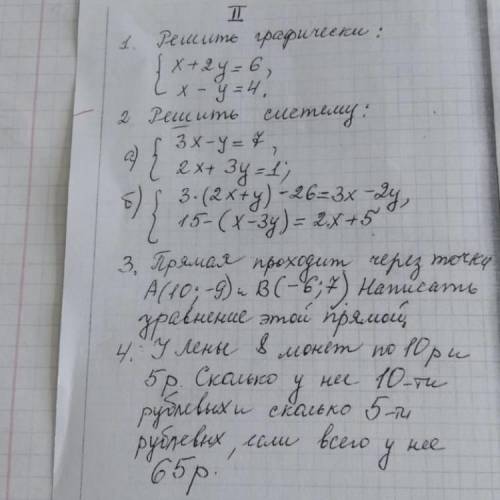 II
1. Решить графически:
{ x + 2y = 6,
x - y = 4.
2 Решить систему:
а) { 3x - y = 7,
2x + 3y = 1;
б) { 3·(2x+y) - 26 = 3x - 2y,
15 - (x - 3y) = 2x + 5
3. Прямая проходит через точки
A(10; -9) и B(-6; 7) Написать
уравнение этой прямой
4. У Лены 8 монет по 10р и
5р. Сколько у нее 10-ти
рублевых и сколько 5-ти
рублевых, если всего у нее
65р.